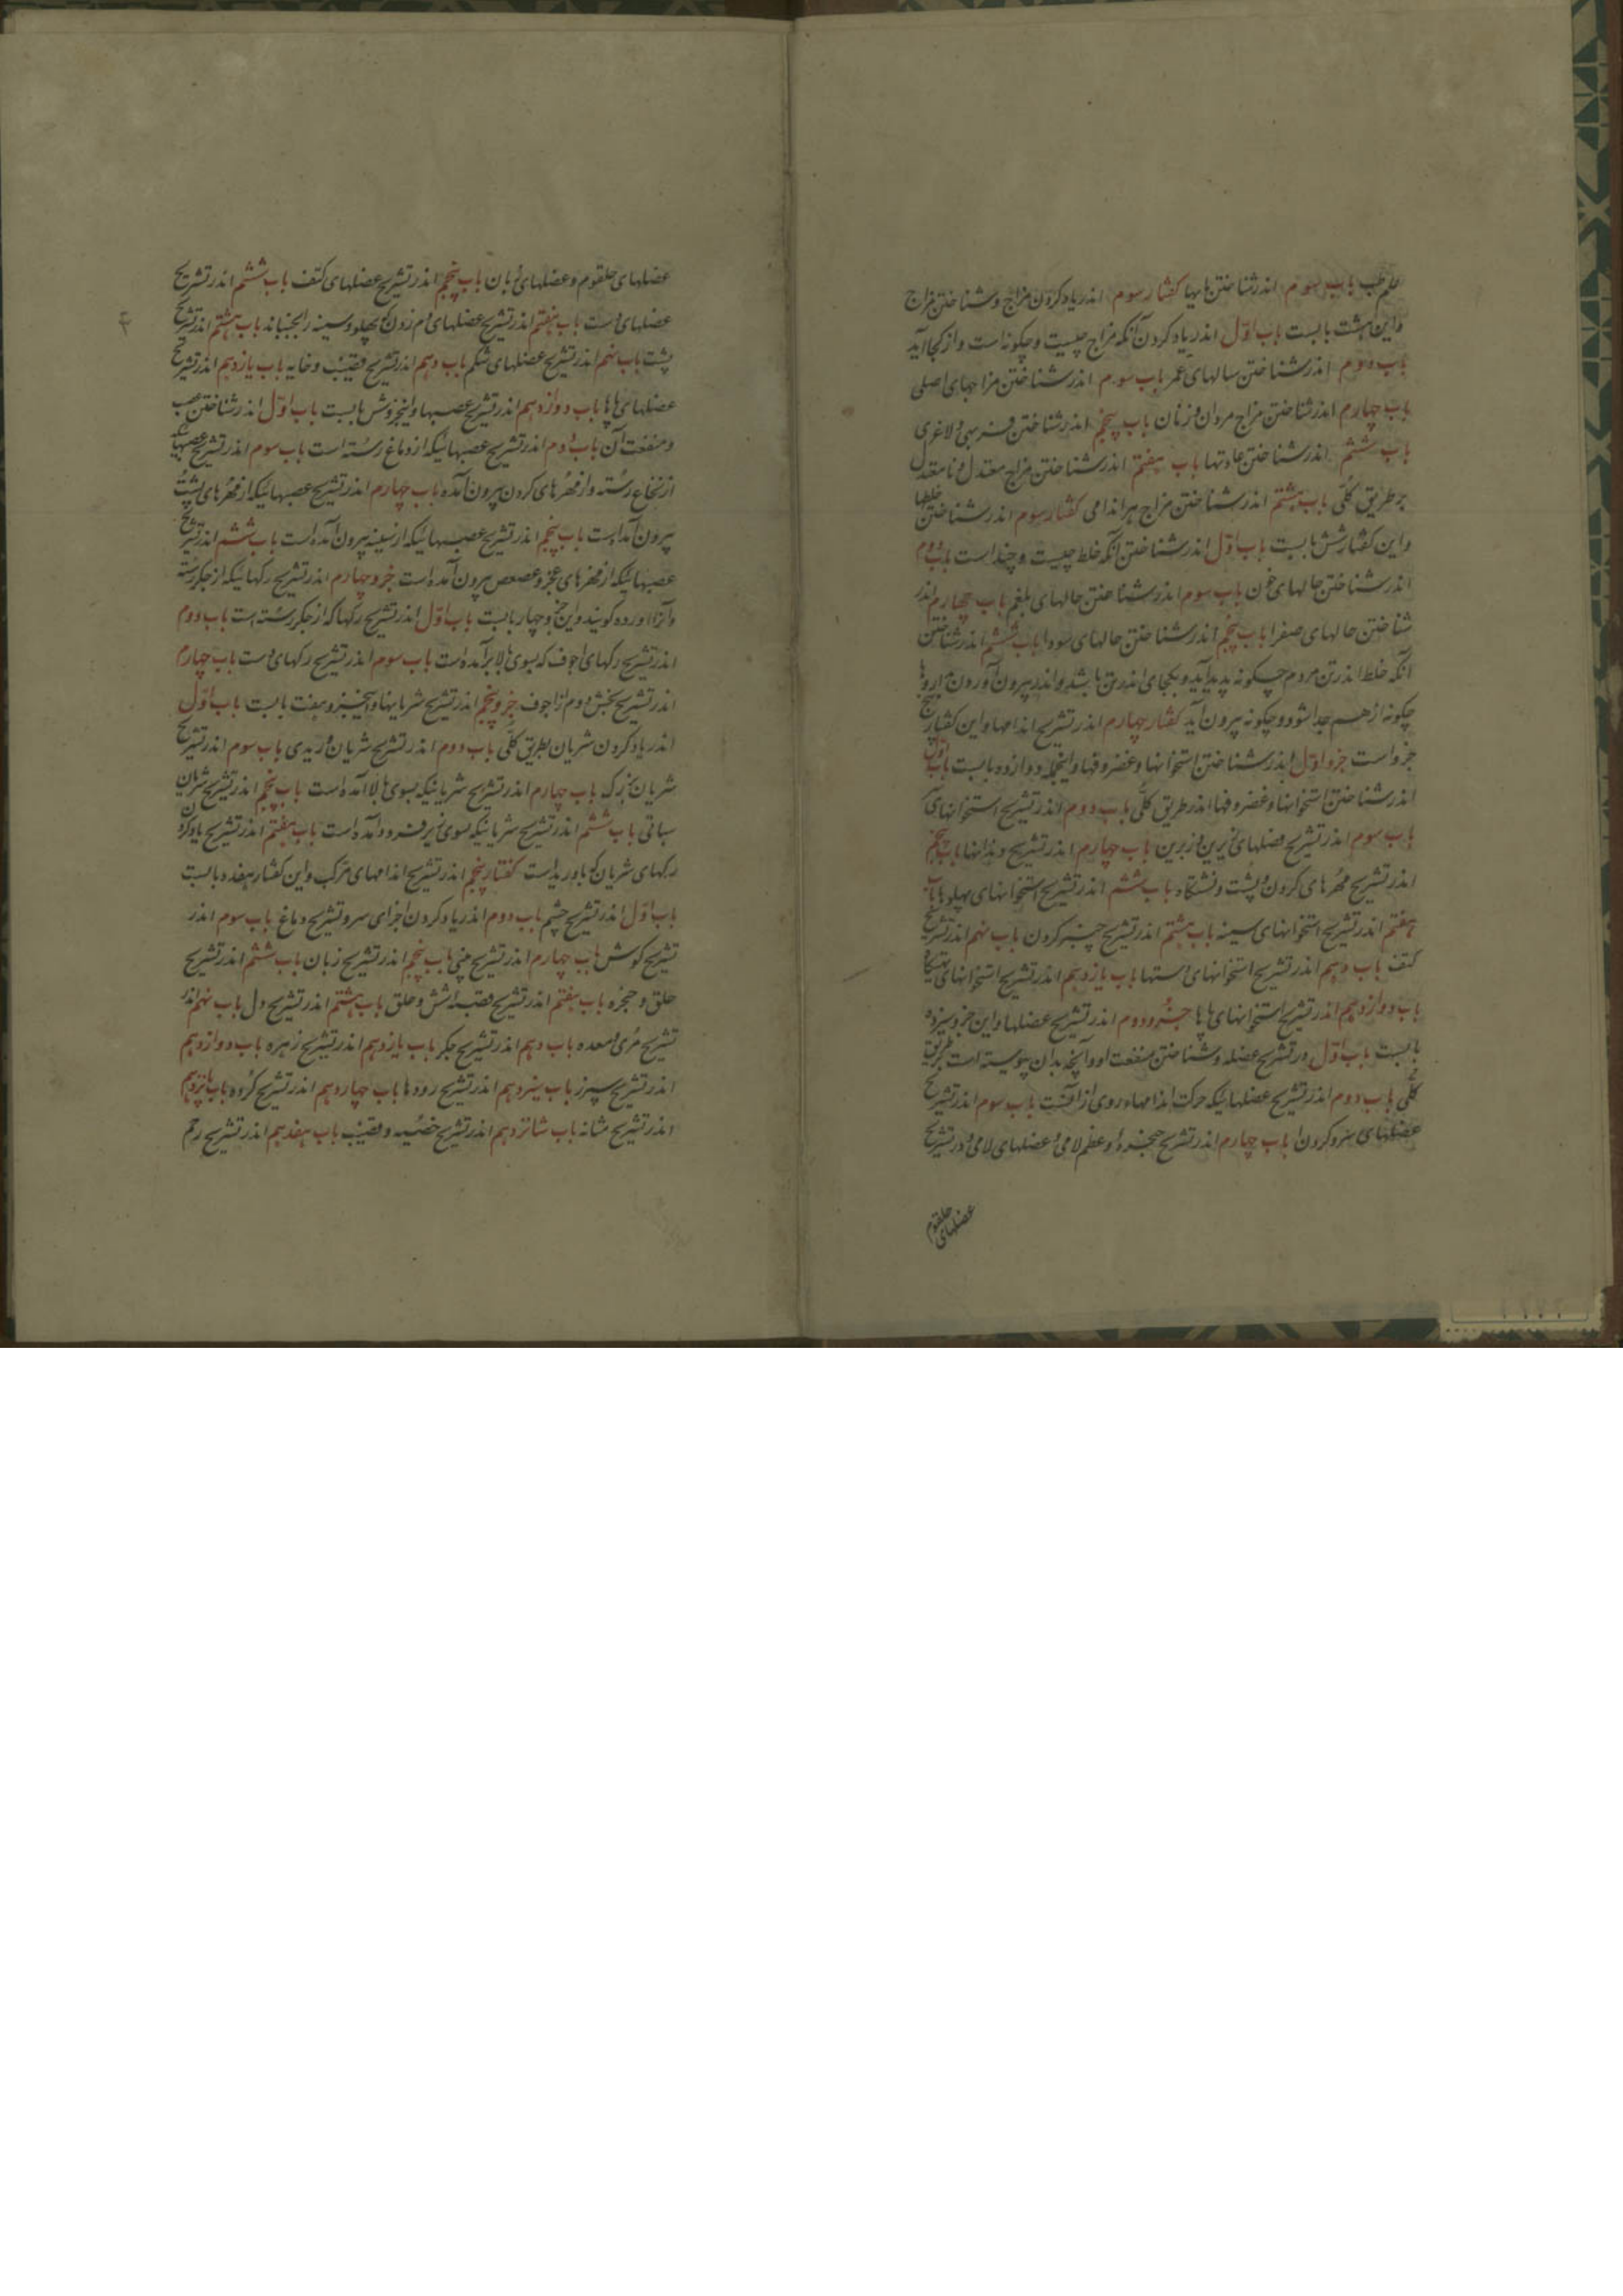 علم طب باب سوم اندر شناختن مایها کفتار سوم اندر یاد کردن مزاج و شناختن مزاج
واین هشت بابست باب اول اندر یاد کردن آنکه مزاج چیست و چکونه است و از کجا آید
باب دوم اندر شناختن سالهای عمر باب سوم اندر شناختن مزاجهای اصلی
باب چهارم اندر شناختن مزاج مردان و زنان باب پنجم اندر شناختن فربهی و لاغری
باب ششم اندر شناختن عادتها باب هفتم اندر شناختن مزاج معتدل و نامعتدل
بر طریق کلی باب هشتم اندر شناختن مزاج هر اندامی کفتار سوم اندر شناختن خلطها
واین کفتار شش بابست باب اول اندر شناختن آنکه خلط چیست و چند است باب دوم
اندر شناختن حالهای خون باب سوم اندر شناختن حالهای بلغم باب چهارم اندر
شناختن حالهای صفرا باب پنجم اندر شناختن حالهای سودا باب ششم اندر شناختن
آنکه خلط اندر تن مردم چکونه پدید آید و بکجای اندر تن باشد و اندر بیرون آوردن داروها
چکونه از هم جدا شود و چکونه بیرون آید کفتار چهارم اندر تشریح اندامها و این کفتار پنج
جزو است جزو اول اندر شناختن استخوانها و غضروفها و اینجمله دوازده بابست باب اول
اندر شناختن استخوانها و غضروفها اندر طریق کلی باب دوم اندر تشریح استخوانهای
باب سوم اندر تشریح فصلهای زیرین و زبرین باب چهارم اندر تشریح دندانها باب پنجم
اندر تشریح مهرهای کردن و پشت و نشتگاه باب ششم اندر تشریح استخوانهای پهلوها باب
هفتم اندر تشریح استخوانهای سینه باب هشتم اندر تشریح چنبر کردن باب نهم اندر تشریح
کتف باب دهم اندر تشریح استخوانهای دستها باب یازدهم اندر تشریح استخوانهای
باب دوازدهم اندر تشریح استخوانهای پاها جزو دوم اندر تشریح عضلها و این جزو سیزده
بابست باب اول در تشریح عضله و شناختن منفعت او و آنچه بدان پیوسته است بطریق
کلی باب دوم اندر تشریح عضلهائیکه حرکت اندامهاء روی از آنست باب سوم اندر تشریح
عضلهای سر و کردن باب چهارم اندر تشریح حنجره و عظم لامی و عضلهای لامی و در تشریح
عضلهای حلقوم
عضلهای حلقوم و عضلهای زبان باب پنجم اندر تشریح عضلهای کتف باب ششم اندر تشریح
عضلهای دست باب هفتم اندر تشریح عضلهای دم زدن که پهلو و سینه را بجنباند باب هشتم اندر تشریح
پشت باب نهم اندر تشریح عضلهای شکم باب دهم اندر تشریح قضیب و خایه باب یازدهم اندر تشریح
عضلهای پاها باب دوازدهم اندر تشریح عصبها و اینجزو شش بابست باب اول اندر شناختن عصب
و منفعت آن باب دوم اندر تشریح عصبهائیکه از دماغ رسته است باب سوم اندر تشریح عصبهائیکه
از نخاع رسته و از مهرهای کردن بیرون آمده باب چهارم اندر تشریح عصبهائیکه از مهرهای پشت
بیرون آمده است باب پنجم اندر تشریح عصبهائیکه از سینه بیرون آمده است باب ششم اندر تشریح
عصبهائیکه از مهرهای عجز و عصعص بیرون آمده است جزو چهارم اندر تشریح رکهائیکه از جکر رسته
و آنرا اورده کویند و این جزو چهار بابست باب اول اندر تشریح رکها که از جکر رسته است باب دوم
اندر تشریح رکهای اجوف که بسوی بالا برآمده است باب سوم اندر تشریح رکهای دست باب چهارم
اندر تشریح بخش دوم از اجوف جزو پنجم اندر تشریح شریانها و اینجزو هفت بابست باب اول
اندر یاد کردن شریان بطریق کلی باب دوم اندر تشریح شریان وریدی باب سوم اندر تشریح
شریان بزرک باب چهارم اندر تشریح شریانیکه بسوی بالا آمده است باب پنجم اندر تشریح شریان
سباتی باب ششم اندر تشریح شریانیکه سوی زیر فرود آمده است باب هفتم اندر تشریح یاد کردن
رکهای شریان که با ورید است کفتار پنجم اندر تشریح اندامهای مرکب و این کفتار هفده بابست
باب اول اندر تشریح چشم باب دوم اندر یاد کردن اجزای سر و تشریح دماغ باب سوم اندر
تشریح کوش باب چهارم اندر تشریح بینی باب پنجم اندر تشریح زبان باب ششم اندر تشریح
حلق و حنجره باب هفتم اندر تشریح قصبه شش و حلق باب هشتم اندر تشریح دل باب نهم اندر
تشریح مری و معده باب دهم اندر تشریح جکر باب یازدهم اندر تشریح زهره باب دوازدهم
اندر تشریح سپرز باب سیزدهم اندر تشریح رودها باب چهاردهم اندر تشریح کرده باب پانزدهم
اندر تشریح مثانه باب شانزدهم اندر تشریح خصیه و قضیب باب هفدهم اندر تشریح رحم